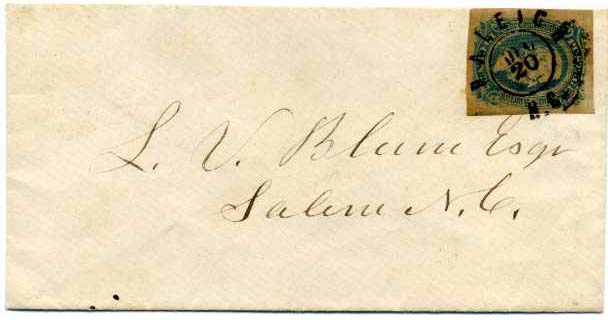 RALEIGH
20
N.C.
L. V. Blum Esqr
Salem N.C.